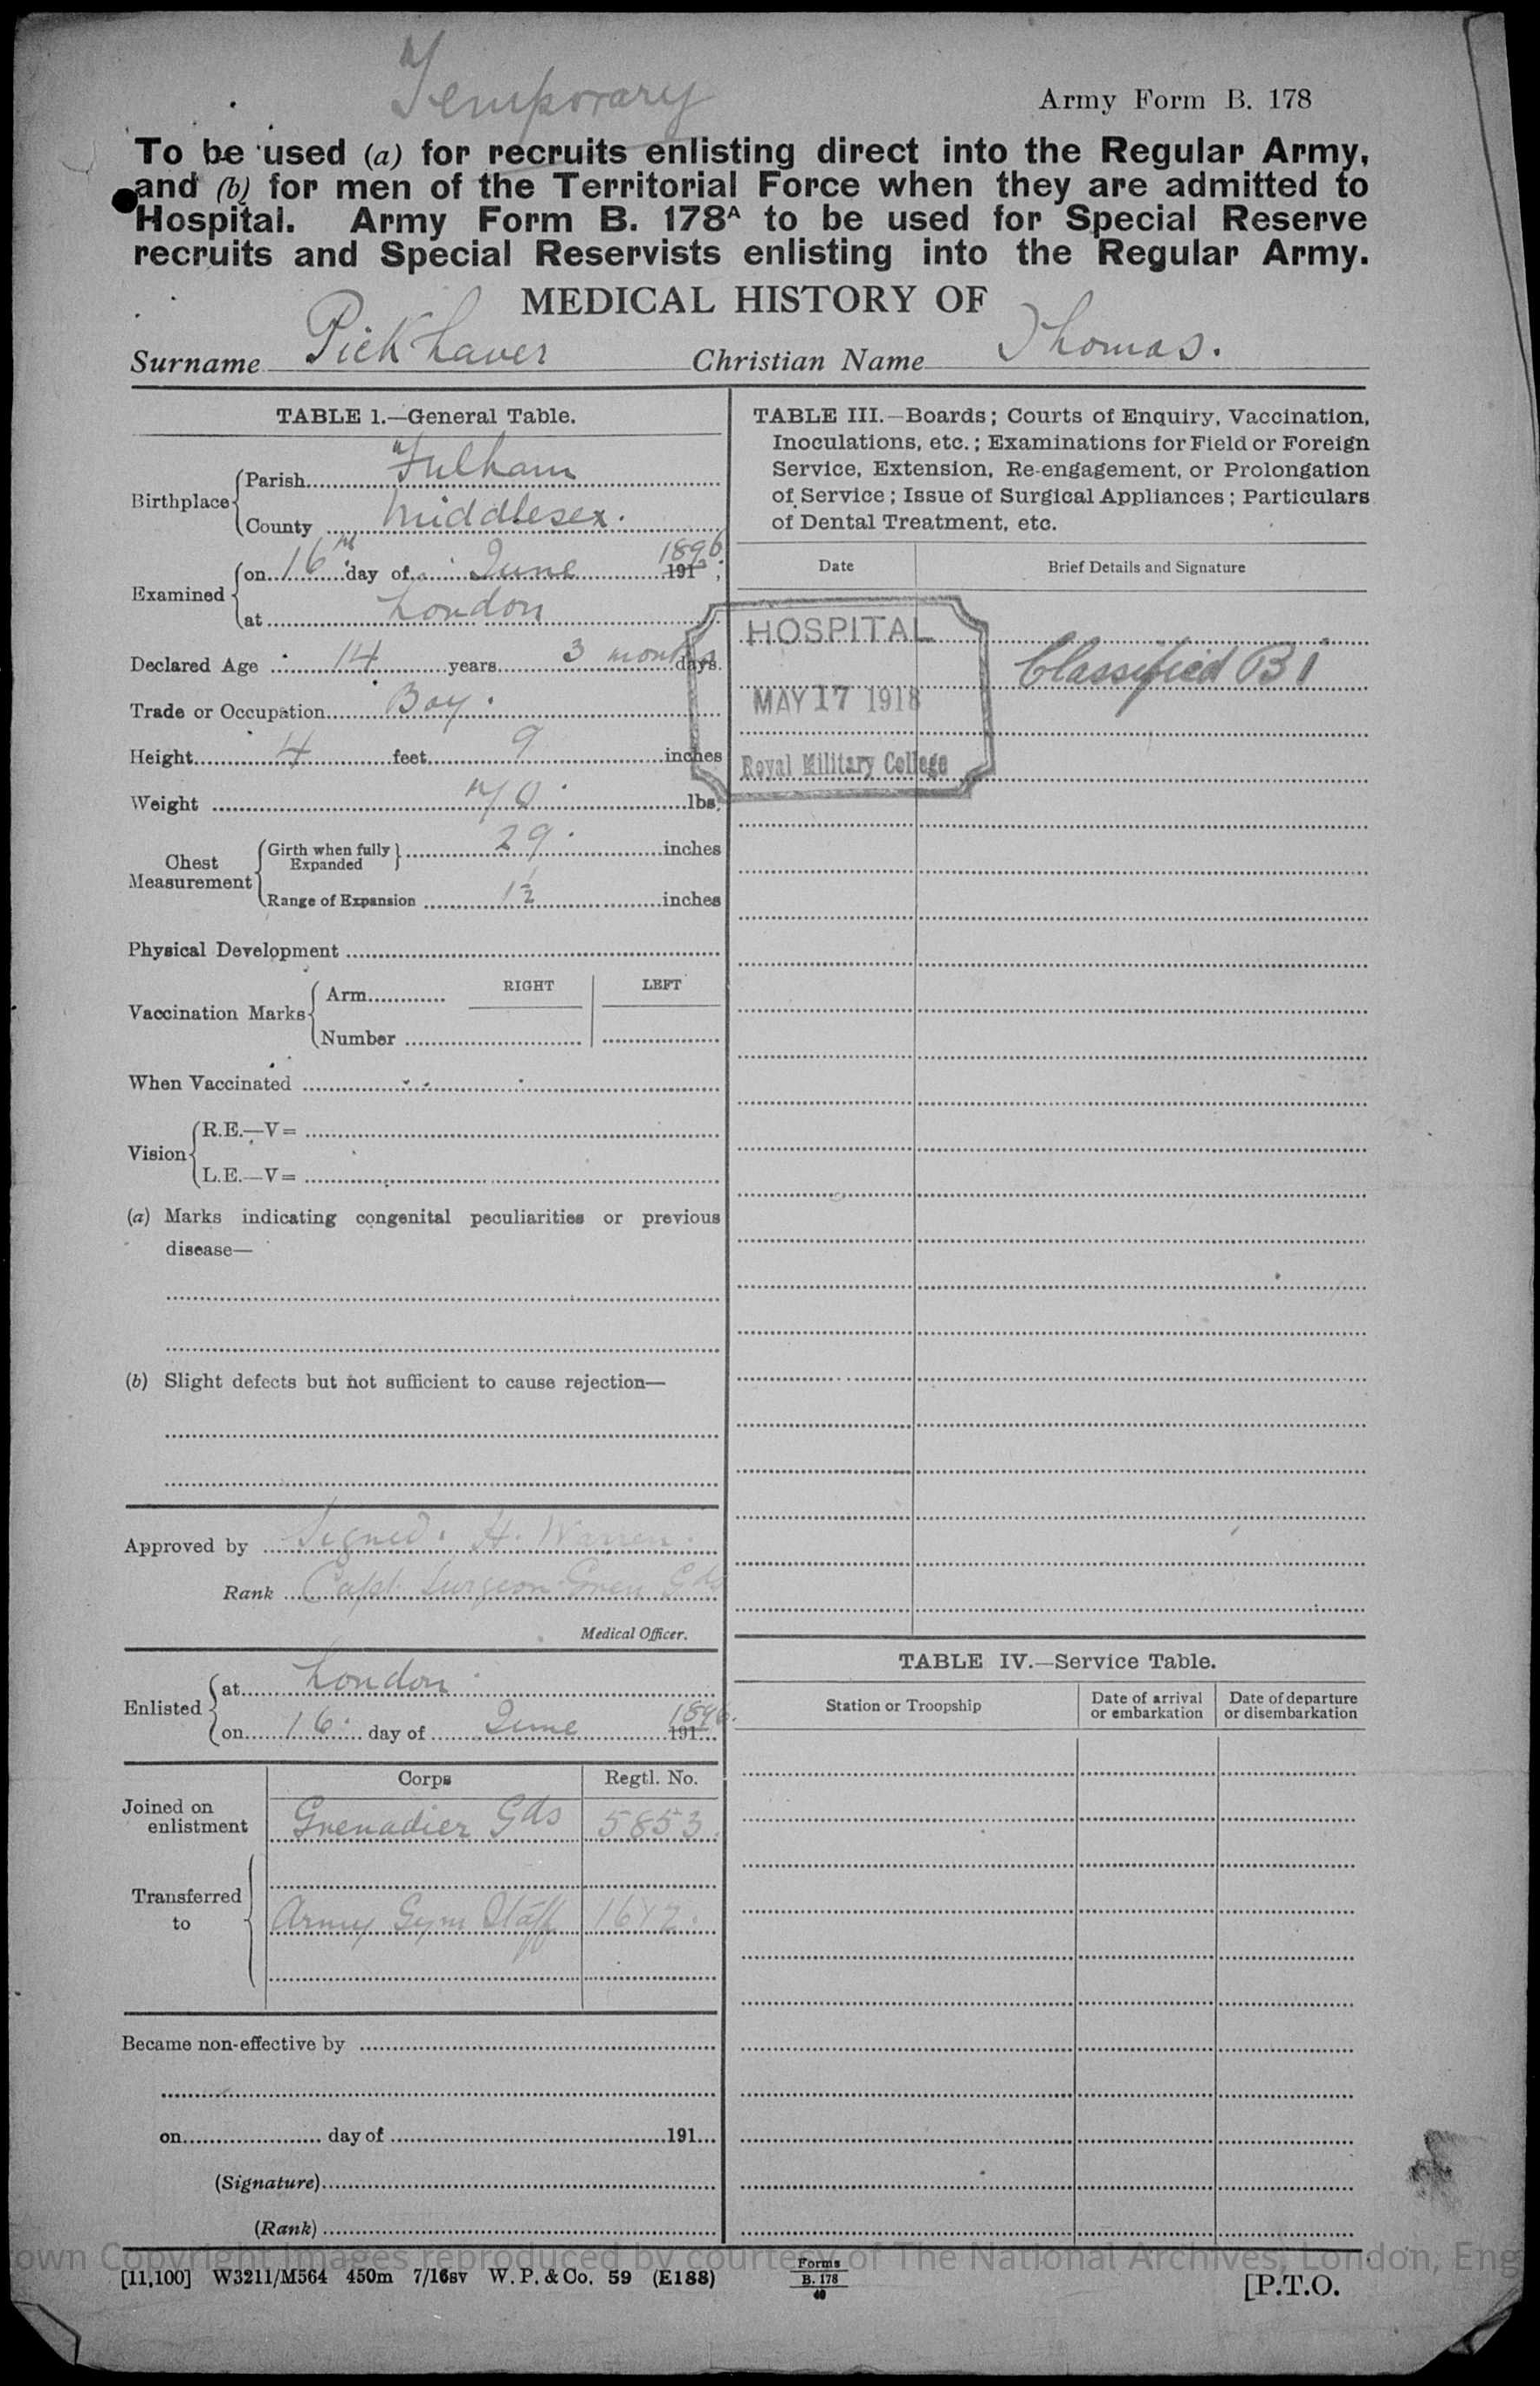 Temporary
Army Form B. 178
To be used (a) for recruits enlisting direct into the Regular Army,
and (b) for men of the Territorial Force when they are admitted to
Hospital. Army Form B. 178A to be used for Special Reserve
recruits and Special Reservists enlisting into the Regular Army.
MEDICAL HISTORY OF
Surname Pickhaver Christian Name Thomas.
TABLE 1.—General Table.
Birthplace
Parish Fulham
County Middlesex.
Examined
on 16th day of June 1896 191 ;
at London
Declared Age 14 years 3 months days.
Trade or Occupation Boy.
Height 4 feet 9 inches
Weight 70 lbs.
Chest Measurement
Girth when fully Expanded 29 inches
Range of Expansion 1½ inches
Physical Development
RIGHT LEFT
Vaccination Marks
Arm
Number
When Vaccinated
Vision
R.E.—V=
L.E.—V=
(a) Marks indicating congenital peculiarities or previous
disease—
(b) Slight defects but not sufficient to cause rejection—
Approved by Signed. H. Warren.
Rank Capt. Surgeon Gren Gds
Medical Officer.
Enlisted
at London
on 16. day of June 1896. 191
Corps Regtl. No.
Joined on enlistment Grenadier Gds 5853
Transferred to
Army Gym Staff
Became non-effective by
on day of 191
(Signature)
(Rank)
TABLE III.—Boards; Courts of Enquiry, Vaccination,
Inoculations, etc.; Examinations for Field or Foreign
Service, Extension, Re-engagement, or Prolongation
of Service; Issue of Surgical Appliances; Particulars
of Dental Treatment, etc.
Date Brief Details and Signature
HOSPITAL
MAY 17 1918
Royal Military College
Classified B i
TABLE IV.—Service Table.
Station or Troopship
Date of arrival or embarkation
Date of departure or disembarkation
own Copyright Images reproduced by courtesy of The National Archives, London, Eng
[11,100] W3211/M564 450m 7/16sv W. P. & Co. 59 (E188)
Forms
B. 178
40
[P.T.O.